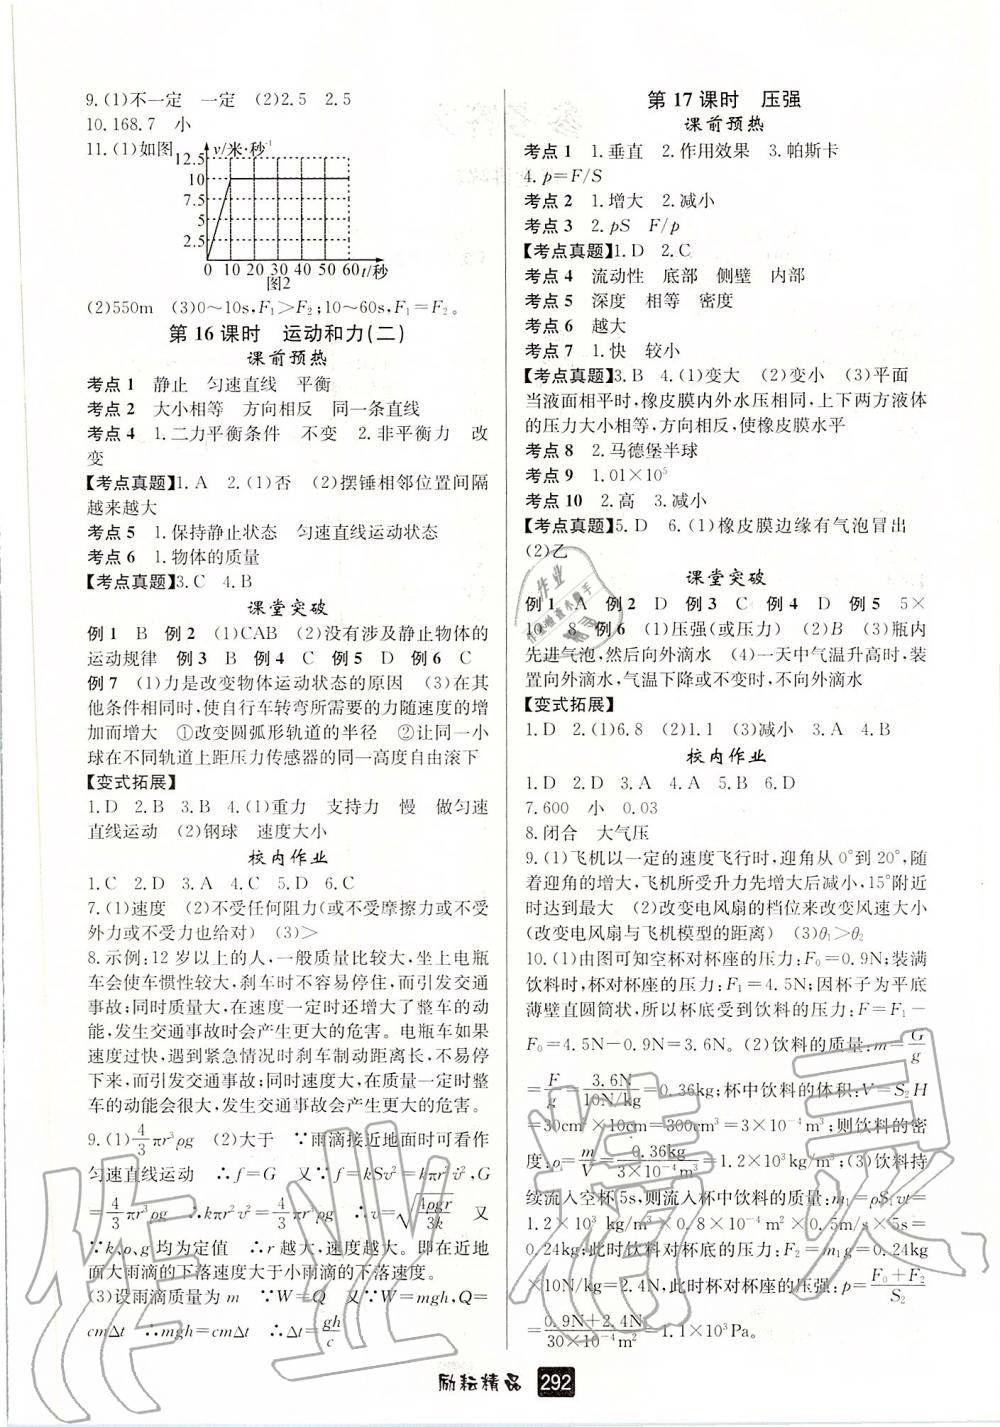 9.(1)不一定　一定　(2)2.5　2.5
10.168.7　小
11.(1)如图
v/米·秒⁻¹
12.5
10
7.5
5
2.5
0 10 20 30 40 50 60 t/秒
图2
(2)550m　(3)0～10s,F₁>F₂;10～60s,F₁=F₂。
第16课时　运动和力(二)
课前预热
考点1　静止　匀速直线　平衡
考点2　大小相等　方向相反　同一条直线
考点4　1.二力平衡条件　不变　2.非平衡力　改
变
【考点真题】1.A　2.(1)否　(2)摆锤相邻位置间隔
越来越大
考点5　1.保持静止状态　匀速直线运动状态
考点6　1.物体的质量
【考点真题】3.C　4.B
课堂突破
例1　B　例2　(1)CAB　(2)没有涉及静止物体的
运动规律　例3　B　例4　C　例5　D　例6　C
例7　(1)力是改变物体运动状态的原因　(3)在其
他条件相同时,使自行车转弯所需要的力随速度的增
加而增大　①改变圆弧形轨道的半径　②让同一小
球在不同轨道上距压力传感器的同一高度自由滚下
【变式拓展】
1.D　2.B　3.B　4.(1)重力　支持力　慢　做匀速
直线运动　(2)钢球　速度大小
校内作业
1.C　2.D　3.A　4.C　5.D　6.C
7.(1)速度　(2)不受任何阻力(或不受摩擦力或不受
外力或不受力也给对)　(3)>
8.示例:12岁以上的人,一般质量比较大,坐上电瓶
车会使车惯性较大,刹车时不容易停住,而引发交通
事故;同时质量大,在速度一定时还增大了整车的动
能,发生交通事故时会产生更大的危害。电瓶车如果
速度过快,遇到紧急情况时刹车制动距离长,不及时
而引发交通事故;同时速度大,在质量一定时整
车的动能会很大,发生交通事故会产生更大的危害。
9.(1)4/3πr³ρg　(2)大于　∵雨滴接近地面时可看作
匀速直线运动　∴f=G　又∵f=kSv²=kπr²v²,G
=4/3πr³ρg　∴kπr²v²=4/3πr³ρg　∴v=√(4ρgr/3k)　又
∵k、ρ、g均为定值　∴r越大,速度越大。即在近地
面大雨滴的下落速度大于小雨滴的下落速度。
(3)设雨滴质量为m　∵W=Q　又∵W=mgh,Q=
cmΔt　∴mgh=cmΔt　∴Δt=gh/c
第17课时　压强
课前预热
考点1　1.垂直　2.作用效果　3.帕斯卡
4.p=F/S
考点2　1.增大　2.减小
考点3　2.pS　F/p
【考点真题】1.D　2.C
考点4　流动性　底部　侧壁　内部
考点5　深度　相等　密度
考点6　越大
考点7　1.快　较小
【考点真题】3.B　4.(1)变大　(2)变小　(3)平面
当液面相平时,橡皮膜内外水压相同,上下两方液体
的压力大小相等,方向相反,使橡皮膜水平
考点8　2.马德堡半球
考点9　1.01×10⁵
考点10　2.高　3.减小
【考点真题】5.D　6.(1)橡皮膜边缘有气泡冒出
(2)乙
课堂突破
例1　A　例2　D　例3　C　例4　D　例5　5×
8　例6　(1)压强(或压力)　(2)B　(3)瓶内
先进气泡,然后向外滴水　(4)一天中气温升高时,装
置向外滴水,气温下降或不变时,不向外滴水
【变式拓展】
1.D　2.(1)6.8　(2)1.1　(3)减小　3.A　4.B
校内作业
1.D　2.D　3.A　4.A　5.B　6.D
7.600　小　0.03
8.闭合　大气压
9.(1)飞机以一定的速度飞行时,迎角从0°到20°,随
着迎角的增大,飞机所受升力先增大后减小,15°附近
时达到最大　(2)改变电风扇的档位来改变风速大小
(改变电风扇与飞机模型的距离)　(3)θ₁>θ₂
10.(1)由图可知空杯对杯座的压力:F₀=0.9N;装满
饮料时,杯对杯座的压力:F₁=4.5N;因杯子为平底
薄壁直圆筒状,所以杯底受到饮料的压力:F=F₁-
F₀=4.5N-0.9N=3.6N。(2)饮料的质量:m=G/g
=F/g=3.6N/10N/kg=0.36kg;杯中饮料的体积:V=S₂H
=30cm²×10cm=300cm³=3×10⁻⁴m³;则饮料的密
度:ρ=m/V=0.36kg/3×10⁻⁴m³=1.2×10³kg/m³;(3)饮料持
续流入空杯5s,则流入杯中饮料的质量:m₁=ρS₁vt=
1.2×10³kg/m³×0.8×10⁻⁴m²×0.5m/s×5s=
0.24kg;此时饮料对杯底的压力:F₂=m₁g=0.24kg
×10N/kg=2.4N,此时杯对杯座的压强:p=F₀+F₂/S₂
=0.9N+2.4N/30×10⁻⁴m²=1.1×10³Pa。
励耘精品 292
作业精灵